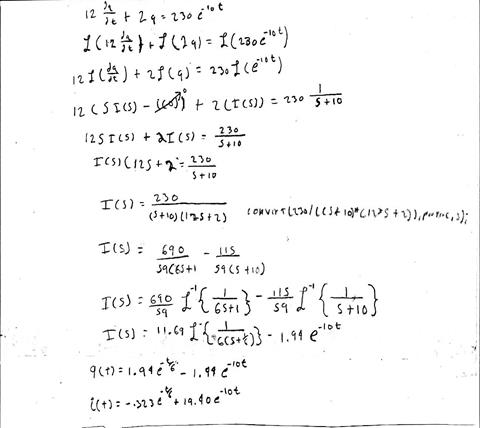 12 dq/dt + 2q = 230 e^-10t
L(12 dq/dt) + L(2q) = L(230e^-10t)
12 L(dq/dt) + 2L(q) = 230 L(e^-10t)
12(SI(s) - i(0)^0) + 2(I(s)) = 230 1/(s+10)
12SI(s) + 2I(s) = 230/(s+10)
I(s)(12s+2 = 230/(s+10)
I(s) = 230/((s+10)(12s+2)) convert(230/((s+10)*(12*s+2)), parfrac, s);
I(s) = 690/(59(6s+1) - 115/(59(s+10))
I(s) = 690/59 L^-1{1/(6s+1)} - 115/59 L^-1{1/(s+10)}
I(s) = 11.69 L^-1{1/(6(s+1/6))} - 1.94 e^-10t
q(t) = 1.94e^-t/6 - 1.94 e^-10t
i(t) = -.323e^-t/6 + 19.40e^-10t